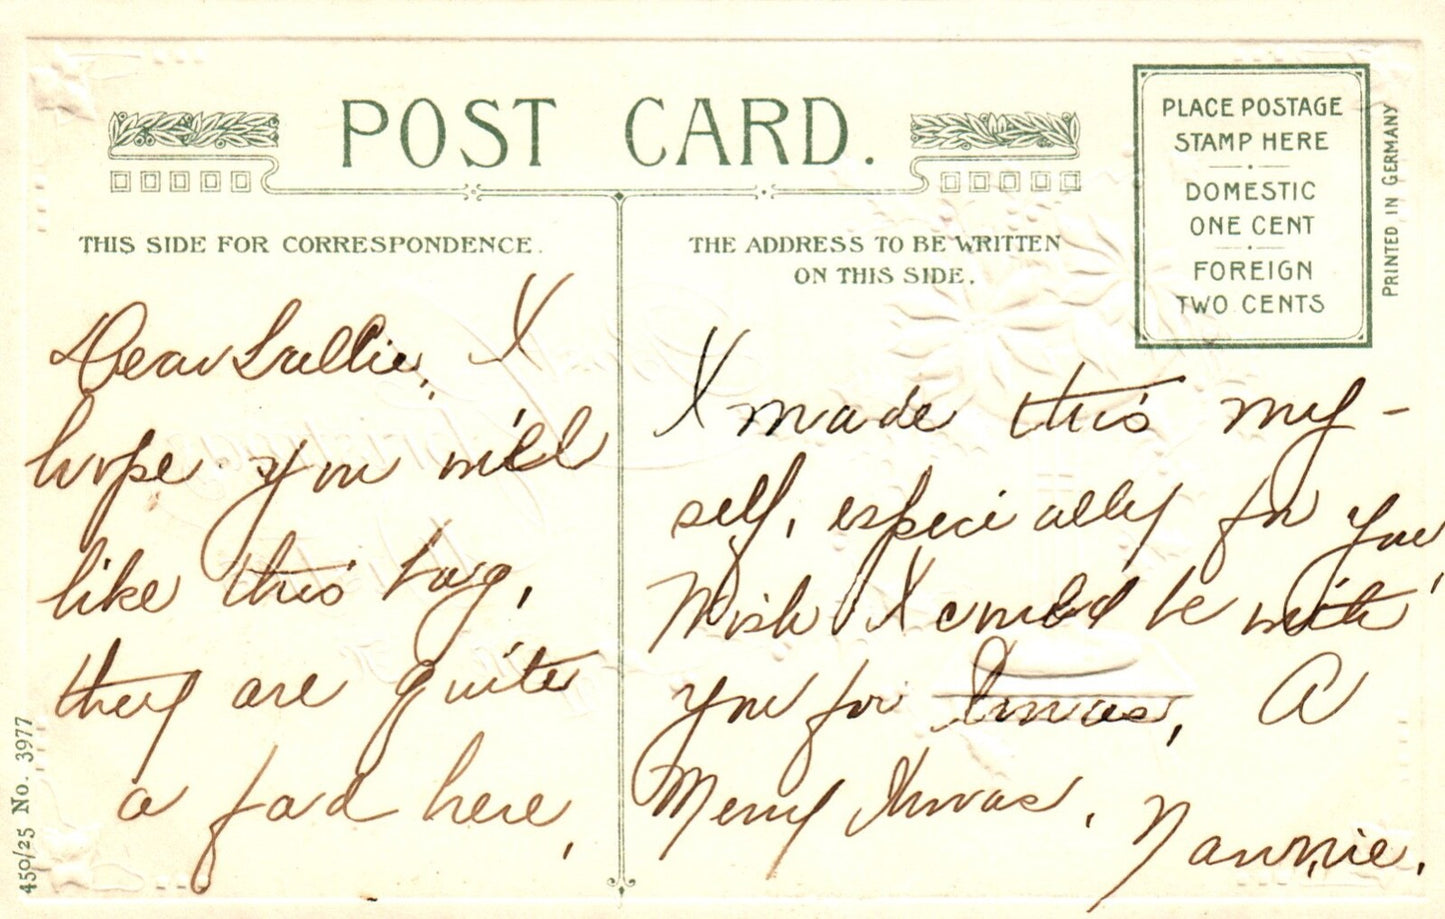 POST CARD.
THIS SIDE FOR CORRESPONDENCE.
Dear Lullie, I
hope you will
like this bag,
they are quite
a fad here,
THE ADDRESS TO BE WRITTEN
ON THIS SIDE.
I made this my-
self, especially for you,
Wish I could be with
you for Xmas, A
Merry Xmas, Nannie.
PLACE POSTAGE
STAMP HERE
DOMESTIC
ONE CENT
FOREIGN
TWO CENTS
PRINTED IN GERMANY
450/25 No. 3977